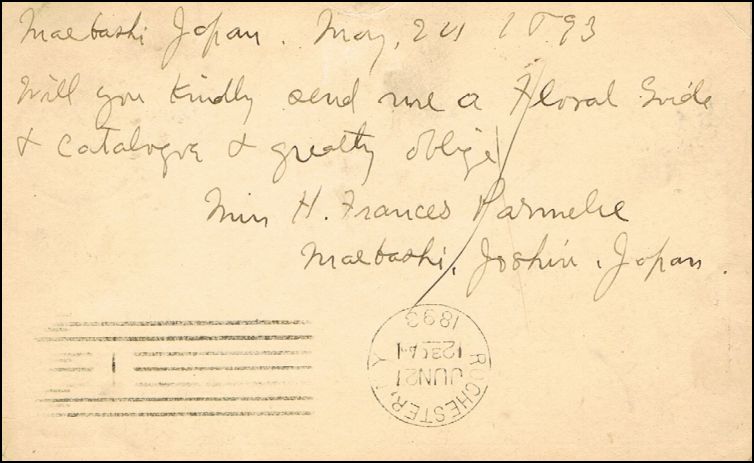 Maebashi Japan. May, 24 1893
Will you kindly send me a Floral Guide
& Catalogue & greatly oblige
Miss H. Frances Parmelee
Maebashi, Joshiu, Japan.
ROCHESTER, N.Y.
JUN 21
12
1893
1